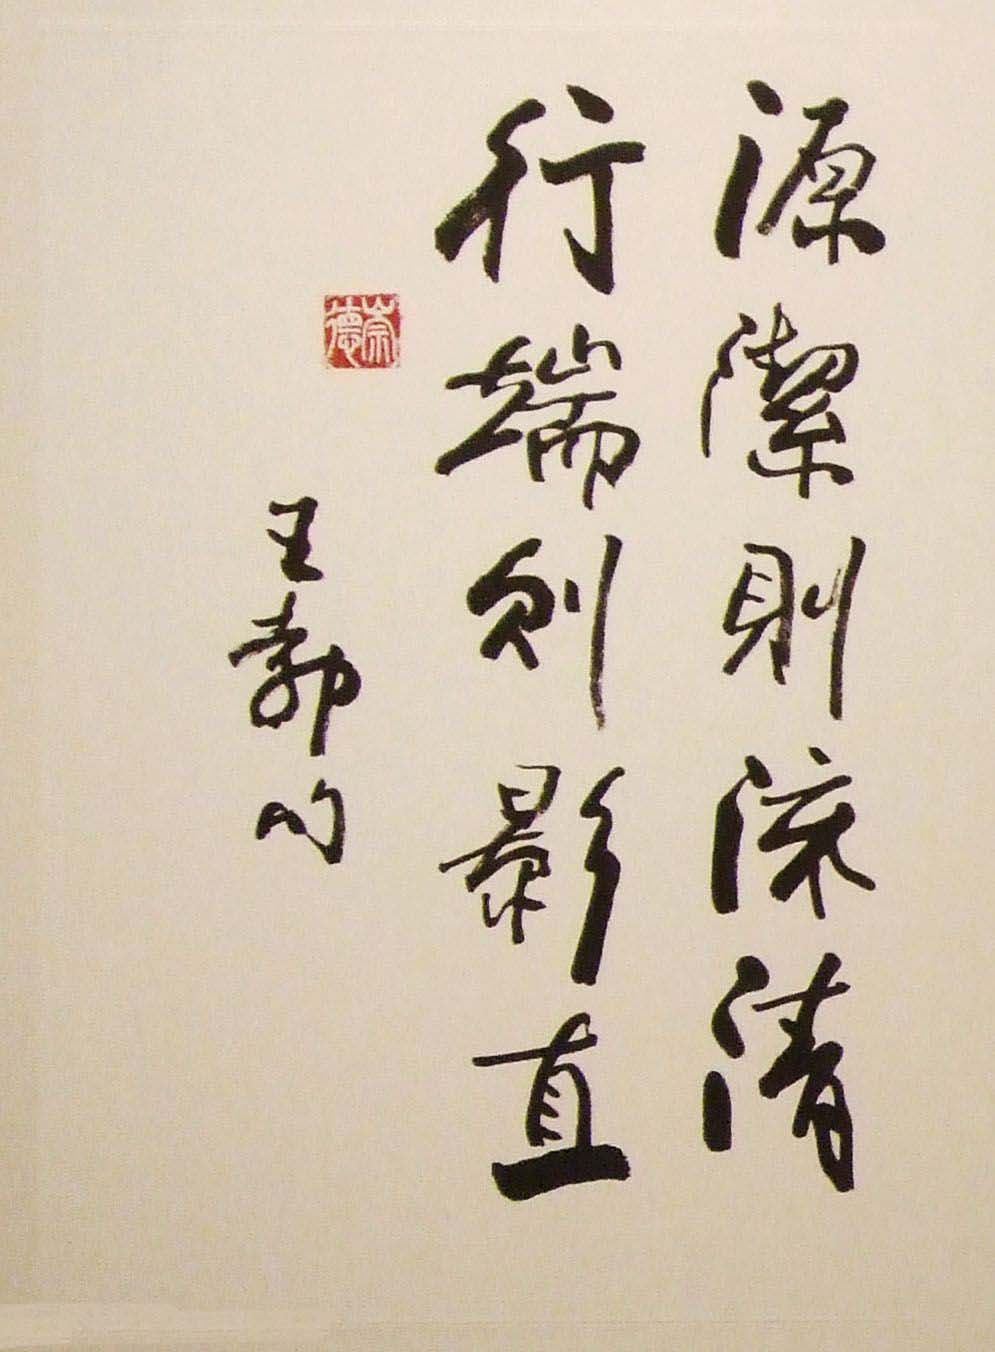 源潔則流清
行端則影直
王勃句
崇德